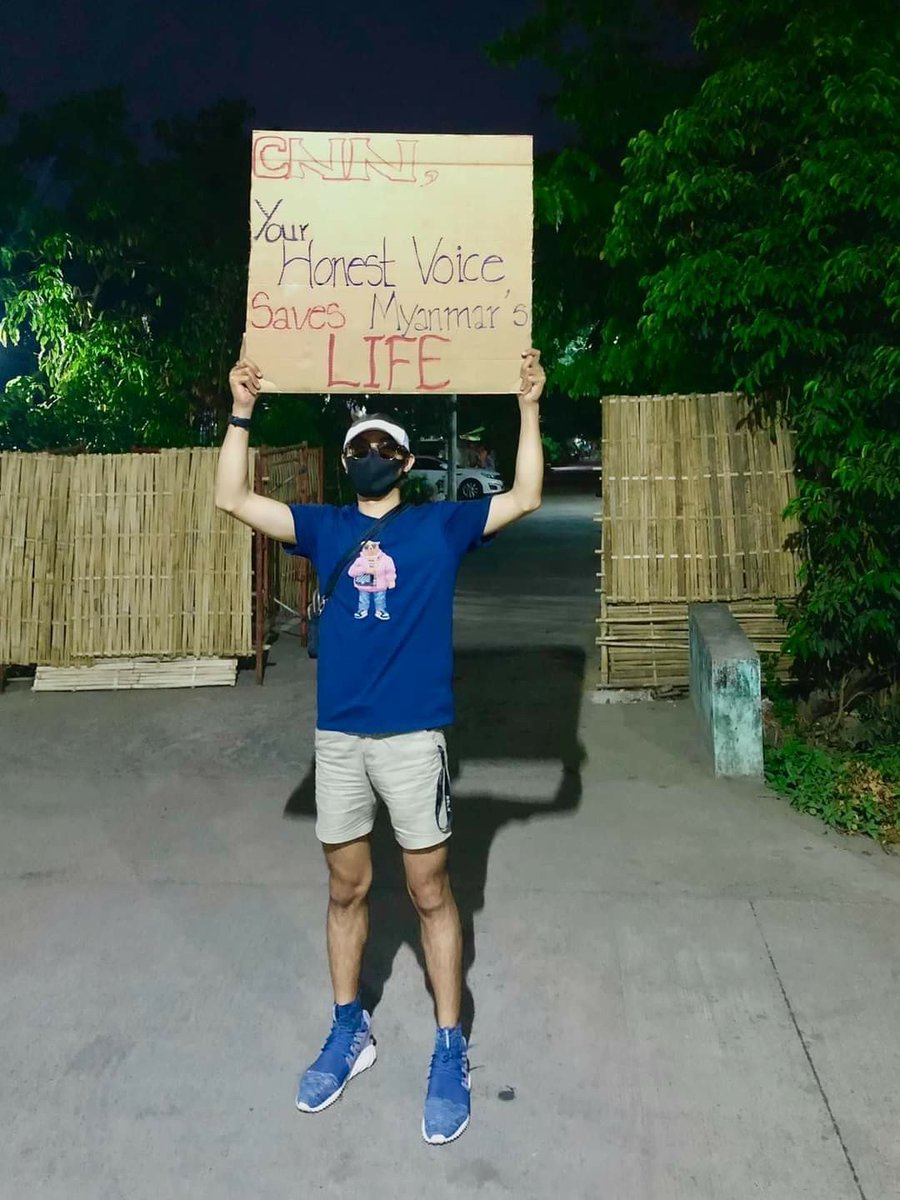 CNN,
Your
Honest Voice
Saves Myanmar's
LIFE